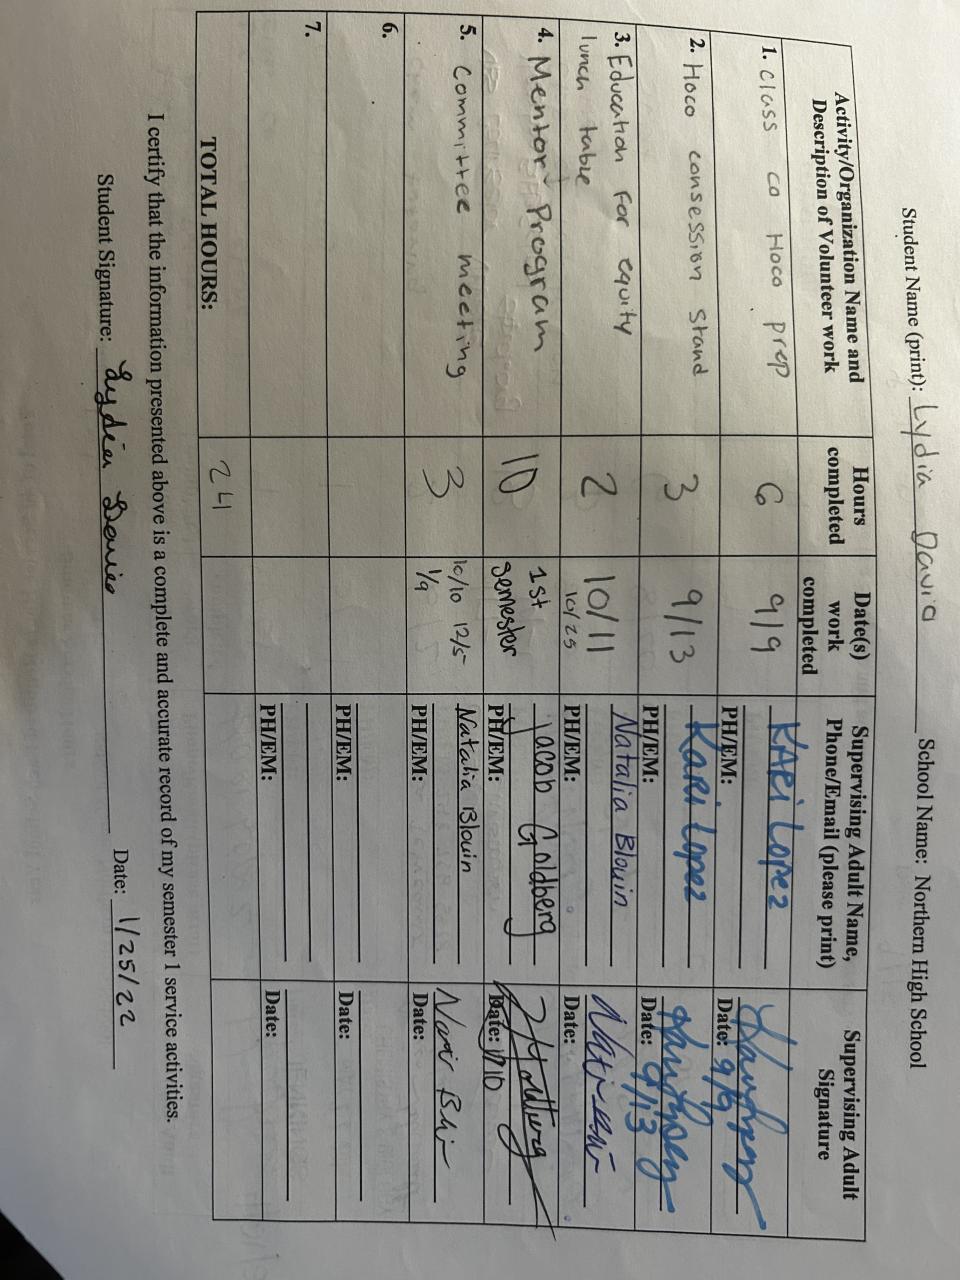 Student Name (print): Lydia Davia School Name: Northern High School
Activity/Organization Name and
Description of Volunteer work
Hours
completed
Date(s)
work
completed
Supervising Adult Name,
Phone/Email (please print)
Supervising Adult
Signature
1. class co Hoco prep
6
9/9
KARi Lopez
PH/EM:
Date: 9/9
2. Hoco consession stand
3
9/13
Kari Lopez
PH/EM:
Date: 9/13
3. Education for equity
lunch table
2
10/11
10/25
Natalia Blouin
PH/EM:
Date:
4. Mentor Program
10
1st
semester
Jacob Goldberg
PH/EM:
Date:
5. Committee meeting
3
10/10 12/5
1/9
Natalia Blouin
PH/EM:
Date:
6.
PH/EM:
Date:
7.
PH/EM:
Date:
TOTAL HOURS:
24
I certify that the information presented above is a complete and accurate record of my semester 1 service activities.
Student Signature: Lydia Date: 1/25/22